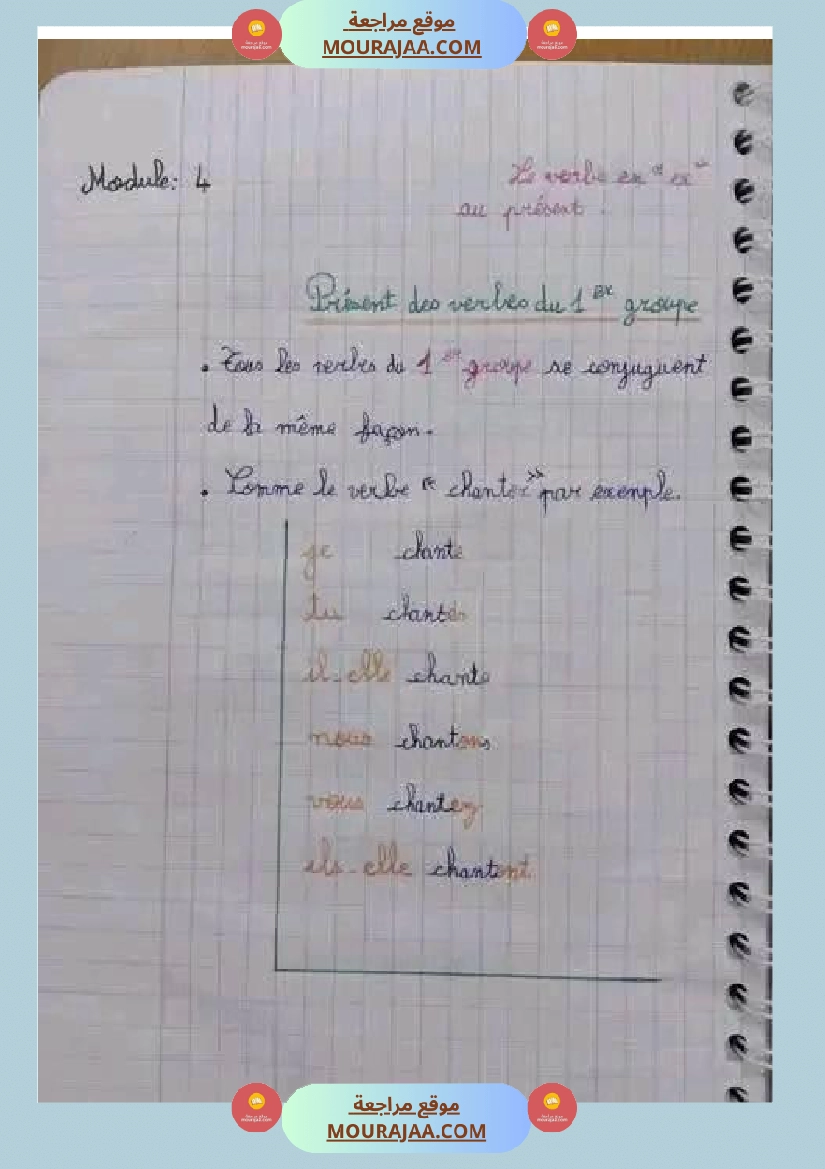 موقع مراجعة
MOURAJAA.COM
Module: 4
Le verbe en " er "
au présent .
Présent des verbes du 1 er groupe
. Tous les verbes du 1 er groupe se conjuguent
de la même façon.
. Comme le verbe « chanter » par exemple.
je chante
tu chantes
il-elle chante
nous chantons
vous chantez
ils-elle chantent
موقع مراجعة
MOURAJAA.COM